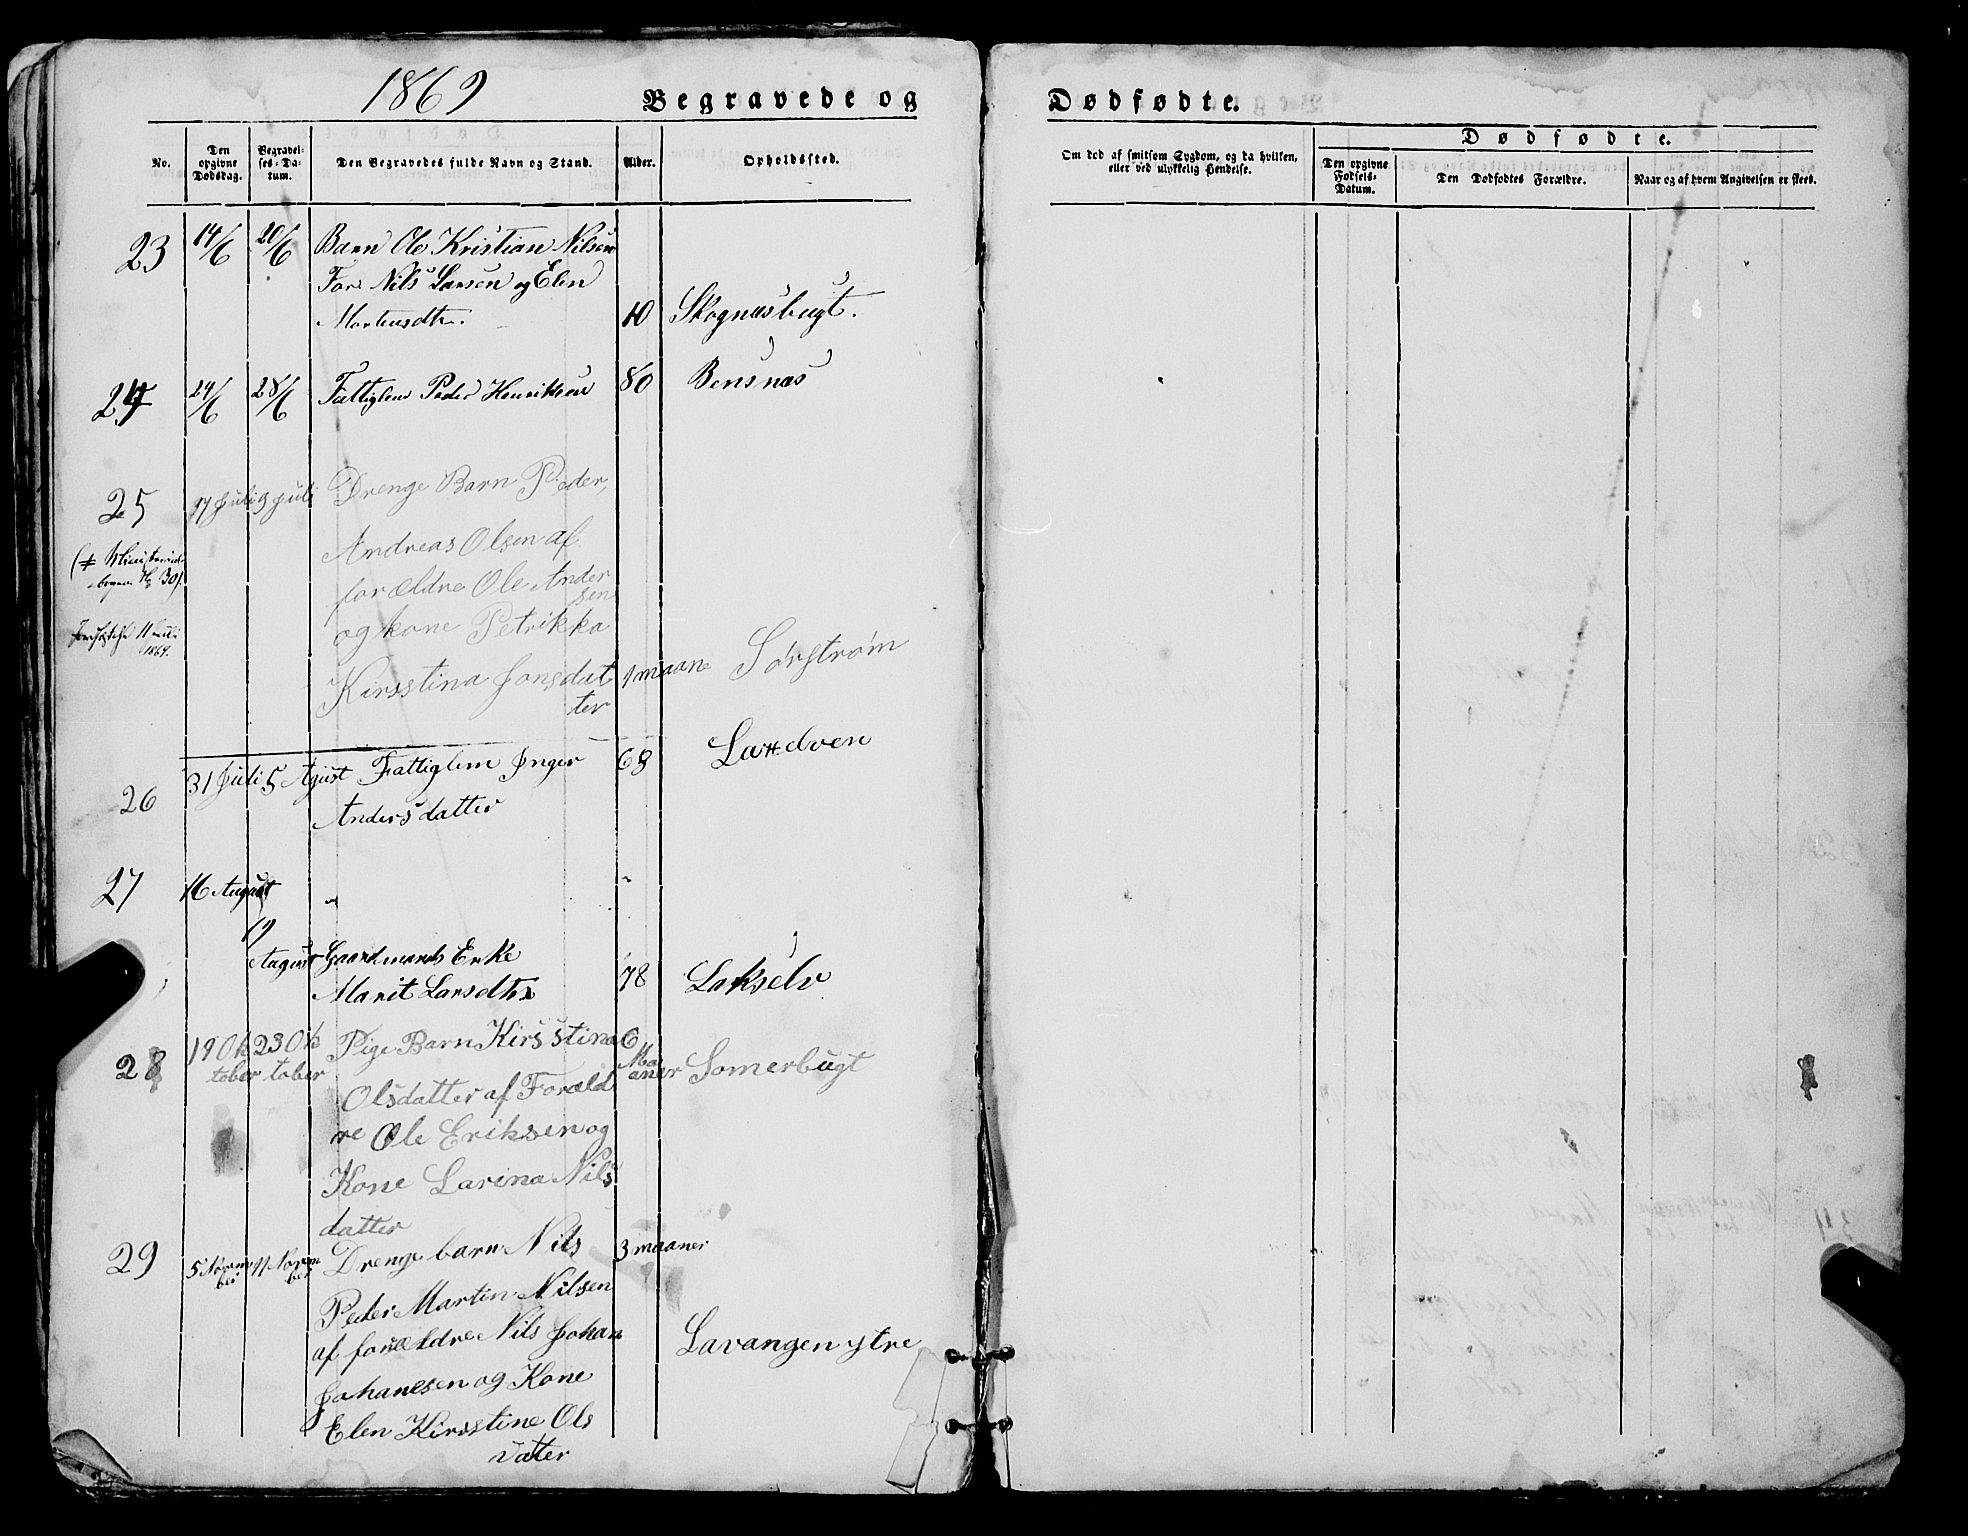 1869
Begravede og
Dødfødte.
No.
Den opgivne Dødsdag.
Begravelses-Datum.
Den Begravedes fulde Navn og Stand.
Alder.
Opholdssted.
Om død af smitsom Sygdom, og da hvilken,
eller ved ulykkelig Hendelse.
Dødfødte.
Den opgivne Fødsels-Datum.
Den Dødfødtes Forældre.
Naar og af hvem Angivelsen er skeed.
23 14/6 20/6 Barn Ole Kristian Nilsen
For: Nils Larsen og Elen
Mortensdtr. 10 Skognæsbugt.
24 24/6 28/6 Fattiglem Peder Henriksen 80 Bensnæs
25 17 Juli Juli Drenge Barn Peder,
Andreas Olsen af
forældre Ole Ander
sen
og kone Petrikka
Kirsstina Jonsdat 1 maane Sørstrøm
ter
(# Ministerial-
bogen No 30).
11 Juli
1869.
26 31 Juli 5 Agust Fattiglem Inger 68
Andersdatter
27 16 August
19
August Gaardmands Enke
Marit Larsdtr 78 Lakselv
28 19 Ok 23 Ok Pige Barn Kirsstina 6
tober tober Maaner Somerbugt
Olsdatter af Foræld
re Ole Eriksen og
Kone Larina Nils
datter
29 5 Novem 11 Novem Drenge barn Nils 3 maaner
ber ber
Peder Martin Nilsen
af forældre Nils Johan
Johanesen og Kone Lavangen ytre
Elen Kirsstine Ols
dater